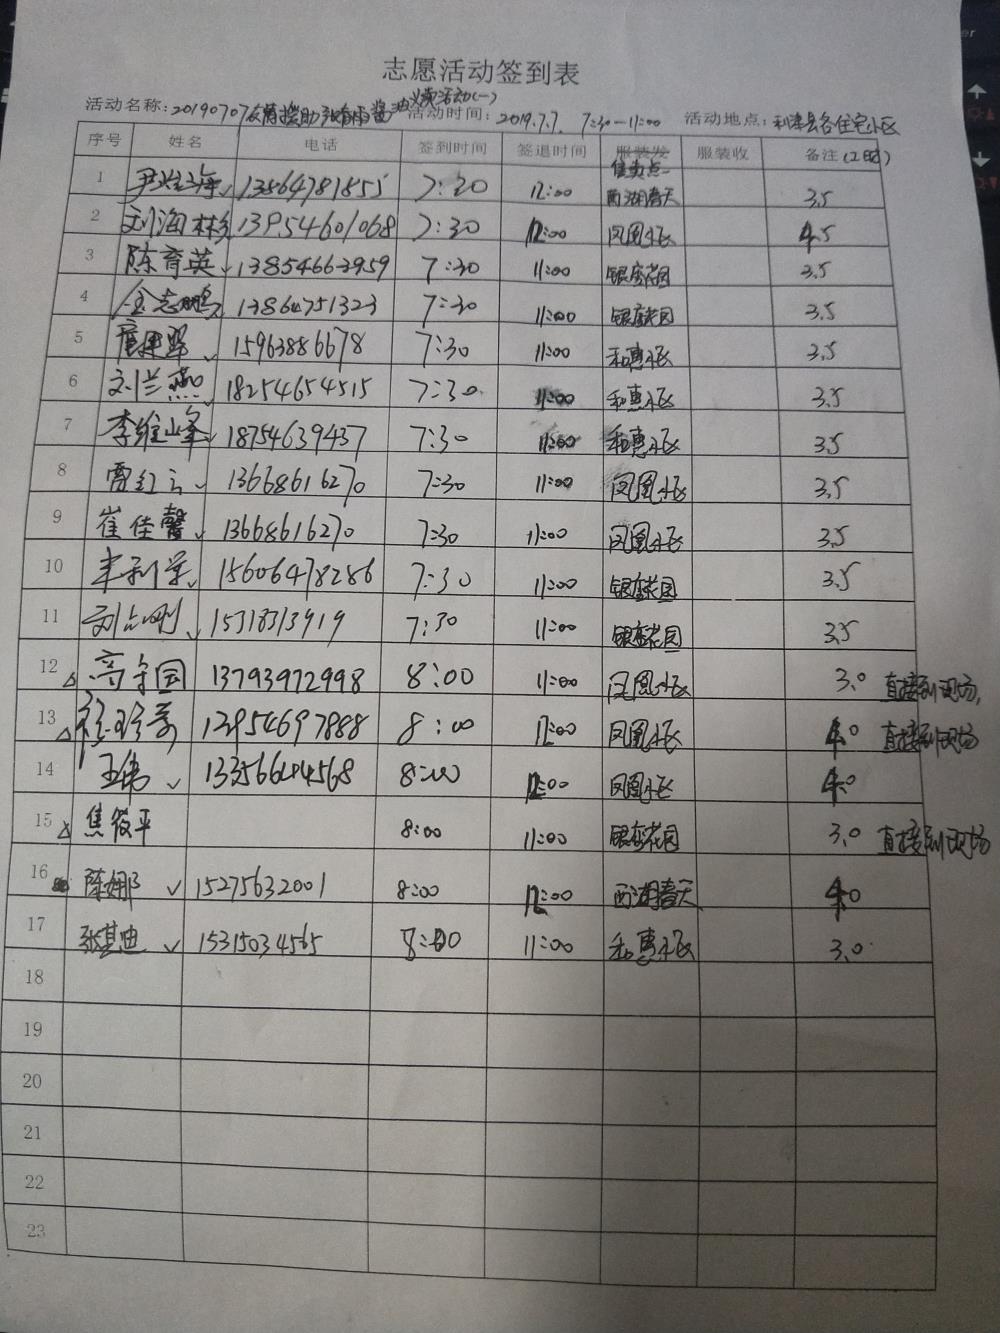 志愿活动签到表
活动名称:20190707 活动(一) 活动时间:2019.7.7. 7:30—11:00 活动地点:利津县各住宅小区
序号 姓名 电话 签到时间 签退时间 服装发 服装收 备注(工时)
售卖点
1 13564781855 7:30 12:00 西湖春天 3.5
2 刘海林 13954601068 7:30 12:00 凤凰小区 4.5
3 陈育英 13854663959 7:30 11:00 银座花园 3.5
4 金志鹏 13864751323 7:30 11:00 银座花园 3.5
5 15963886678 7:30 11:00 和惠小区 3.5
6 刘兰燕 18254654515 7:30 11:00 和惠小区 3.5
7 李维峰 18754639437 7:30 11:00 和惠小区 3.5
8 雷红云 13668616270 7:30 11:00 凤凰小区 3.5
9 崔佳馨 13668616270 7:30 11:00 凤凰小区 3.5
10 15606478286 7:30 11:00 银座花园 3.5
11 刘志刚 15318313919 7:30 11:00 银座花园 3.5
12 高守国 13793972998 8:00 11:00 凤凰小区 3.0 直接到现场
13 13954697888 8:00 12:00 凤凰小区 4.0 直接到现场
14 王伟 13356644568 8:00 12:00 凤凰小区 4.0
15 焦筱平 8:00 11:00 银座花园 3.0 直接到现场
16 陈娜 15275632001 8:00 12:00 西湖春天 4.0
17 张其迪 15315034565 8:00 11:00 和惠小区 3.0
18
19
20
21
22
23